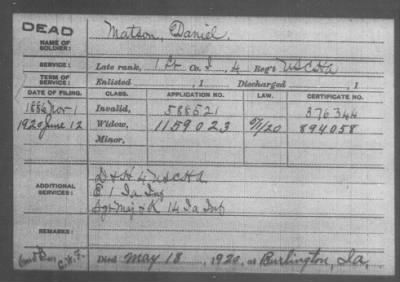 DEAD
NAME OF SOLDIER:
Matson, Daniel.
SERVICE:
Late rank, 1 Lt Co. I, 4 Reg't USCHA
TERM OF SERVICE:
Enlisted , 1 Discharged , 1
DATE OF FILING. CLASS. APPLICATION NO. LAW. CERTIFICATE NO.
1886 Nov 1 Invalid, 588521 376344
1920 June 12 Widow, 1159023 894058
Minor,
ADDITIONAL SERVICES:
D & H 4 USCHA
E 1 Ia Inf
Sgt Maj & K 14 Ia Inf
REMARKS:
Died May 18, 1920, at Burlington, Ia,